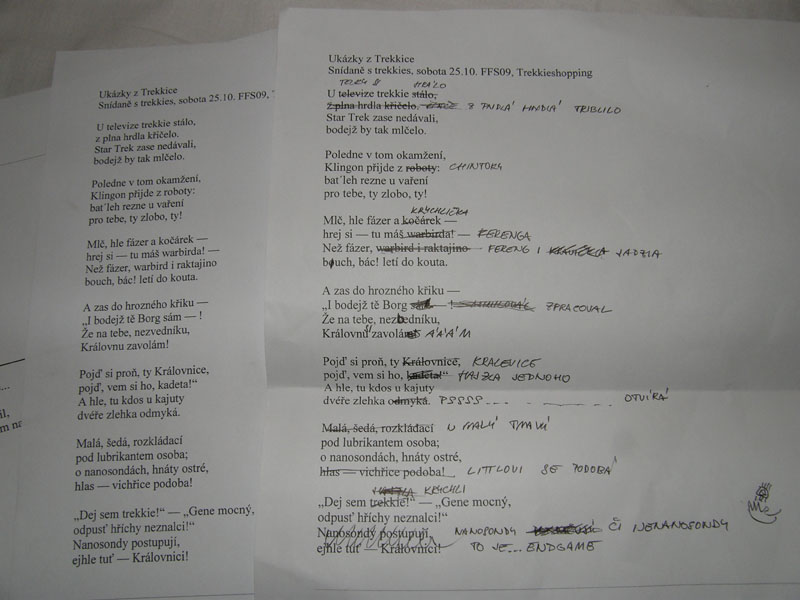 Ukázky z Trekkice
Snídaně s trekkies, sobota 25.10. FFS09,
U televize trekkie stálo,
z plna hrdla křičelo.
Star Trek zase nedávali,
bodejž by tak mlčelo.
Poledne v tom okamžení,
Klingon přijde z roboty:
bat´leh rezne u vaření
pro tebe, ty zlobo, ty!
Mlč, hle fázer a kočárek —
hrej si — tu máš warbirda! —
Než fázer, warbird i raktajino
bouch, bác! letí do kouta.
A zas do hrozného křiku —
„I bodejž tě Borg sám — !
Že na tebe, nezvedníku,
Královnu zavolám!
Pojď si proň, ty Královnice,
pojď, vem si ho, kadeta!“
A hle, tu kdos u kajuty
dvéře zlehka odmyká.
Malá, šedá, rozkládací
pod lubrikantem osoba;
o nanosondách, hnáty ostré,
hlas — vichřice podoba!
„Dej sem trekkie!“ — „Gene mocný,
odpusť hříchy neznalci!“
Nanosondy postupují,
ejhle tuť — Královnici!
Ukázky z Trekkice
Snídaně s trekkies, sobota 25.10. FFS09, Trekkieshopping
HRÁLO
U televize trekkie stálo,
z plna hrdla křičelo. Z PNDLÁ HNDLÁ TRIBLILO
Star Trek zase nedávali,
bodejž by tak mlčelo.
Poledne v tom okamžení,
Klingon přijde z roboty: CHINTOKY
bat´leh rezne u vaření
pro tebe, ty zlobo, ty!
KRYCHLIČKA
Mlč, hle fázer a kočárek —
hrej si — tu máš warbirda! — FERENGA
Než fázer, warbird i raktajino FERENG I JADZIA
bouch, bác! letí do kouta.
A zas do hrozného křiku —
„I bodejž tě Borg — ! ZPRACOVAL
Že na tebe, nezbedníku,
Královnu zavolám ÁÁÁM
Pojď si proň, ty Královnice, KRALEVICE
pojď, vem si ho, kadeta!“ HAJZKA JEDNOHO
A hle, tu kdos u kajuty
dvéře zlehka odmyká. PSSSS... OTVÍRÁ
Malá, šedá, rozkládací U MALÝ TMAVÝ
pod lubrikantem osoba;
o nanosondách, hnáty ostré,
hlas — vichřice podoba! LITTLOVI SE PODOBÁ
KRYCHLI
„Dej sem trekkie!“ — „Gene mocný,
odpusť hříchy neznalci!“
Nanosondy postupují, NANOSONDY ČI NENANOSONDY
ejhle tuť — Královnici! TO JE... ENDGAME